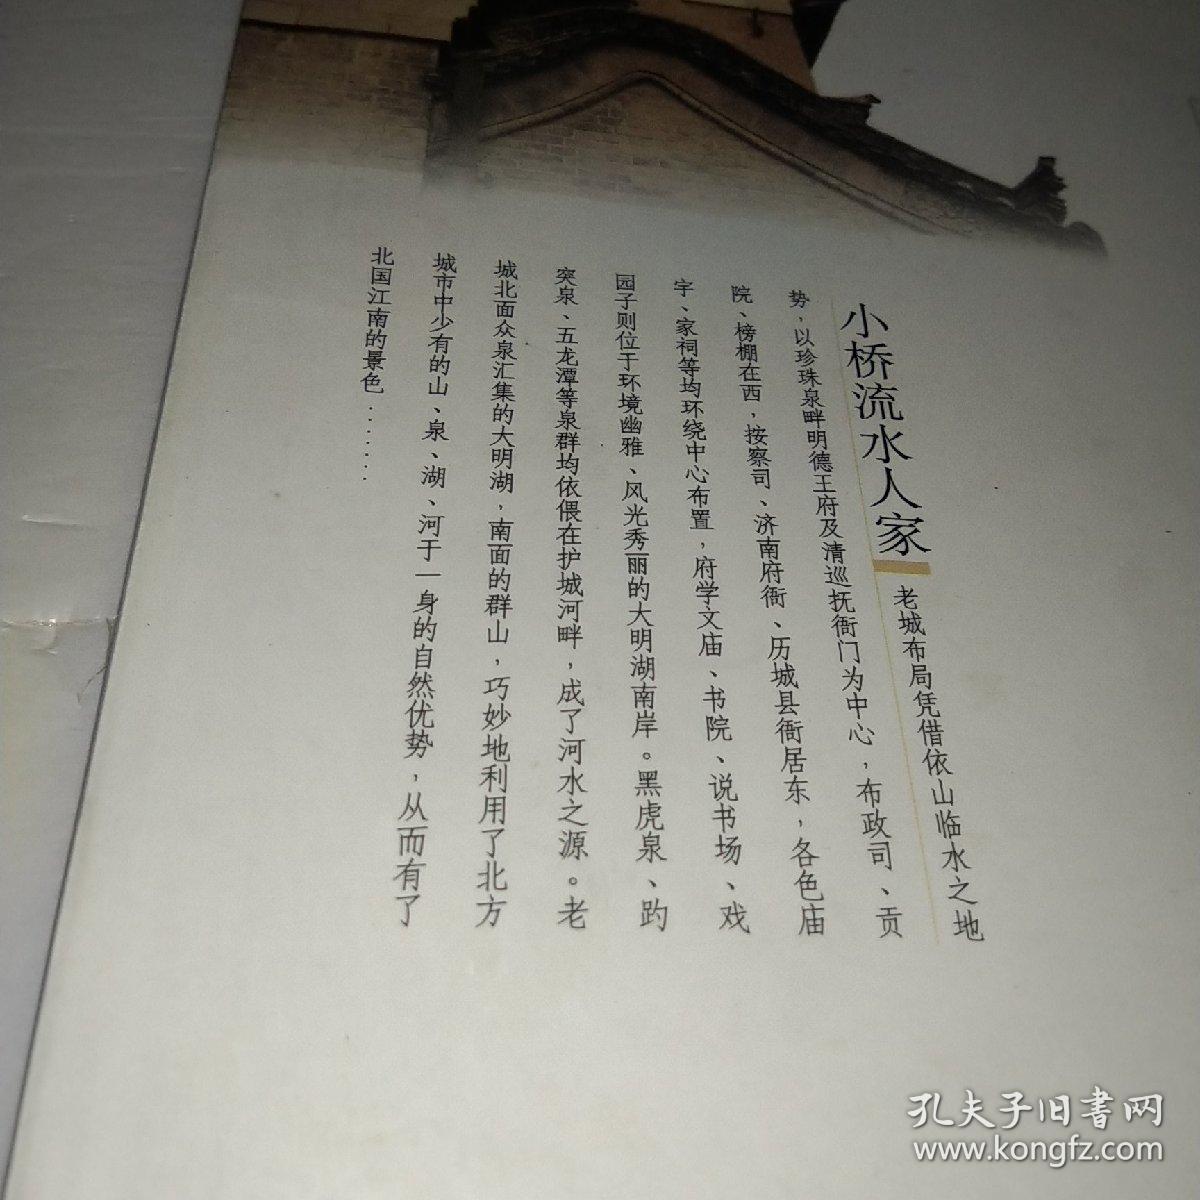 小桥流水人家
老城布局凭借依山临水之地
势，以珍珠泉畔明德王府及清巡抚衙门为中心，布政司、贡
院、榜棚在西，按察司、济南府衙、历城县衙居东，各色庙
宇、家祠等均环绕中心布置，府学文庙、书院、说书场、戏
园子则位于环境幽雅、风光秀丽的大明湖南岸。黑虎泉、趵
突泉、五龙潭等泉群均依偎在护城河畔，成了河水之源。老
城北面众泉汇集的大明湖，南面的群山，巧妙地利用了北方
城市中少有的山、泉、湖、河于一身的自然优势，从而有了
北国江南的景色……
孔夫子旧书网
www.kongfz.com